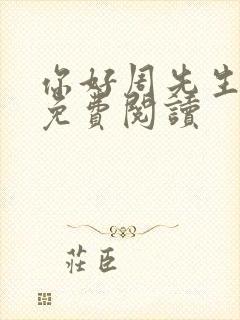 你好周先生
免費閱讀
莊臣